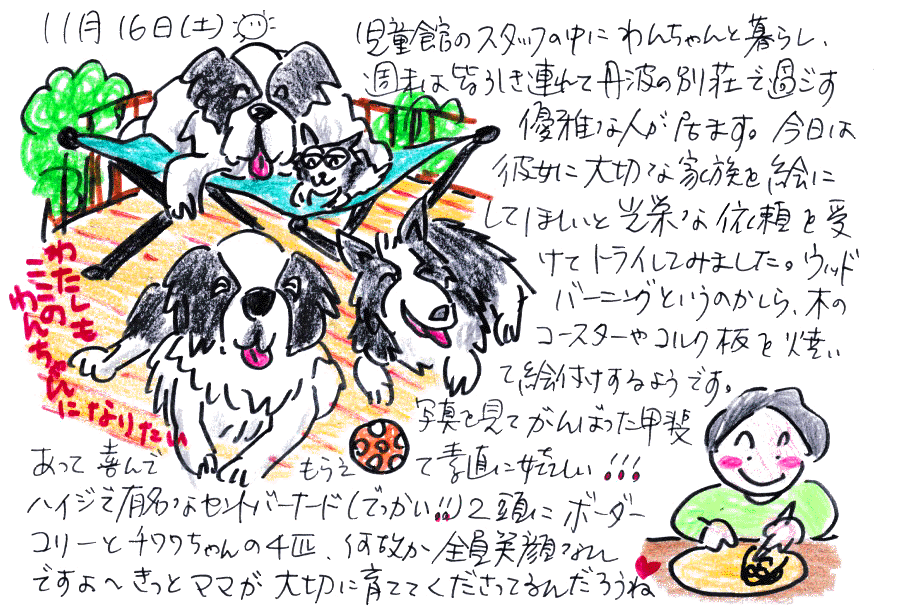 11月16日(土)
児童館のスタッフの中に わんちゃんと暮らし、
週末は皆ひき連れて丹波の別荘で過ごす
優雅な人が居ます。今日は
彼女に大切な家族を絵に
してほしいと光栄な依頼を受
けてトライしてみました。ウッド
バーニングというのかしら、木の
コースターやコルク板を焼い
て絵付けするようです。
写真を見てがんばった甲斐
あって喜んでもらえて素直に嬉しい!!!
ハイジで有名なセントバーナード(でっかい!!)2頭にボーダー
コリーとチワワちゃんの4匹、何故か全員笑顔なん
ですよ〜きっとママが大切に育ててくださってるんだろうね
わたしも
ここの
わんちゃんになりたい